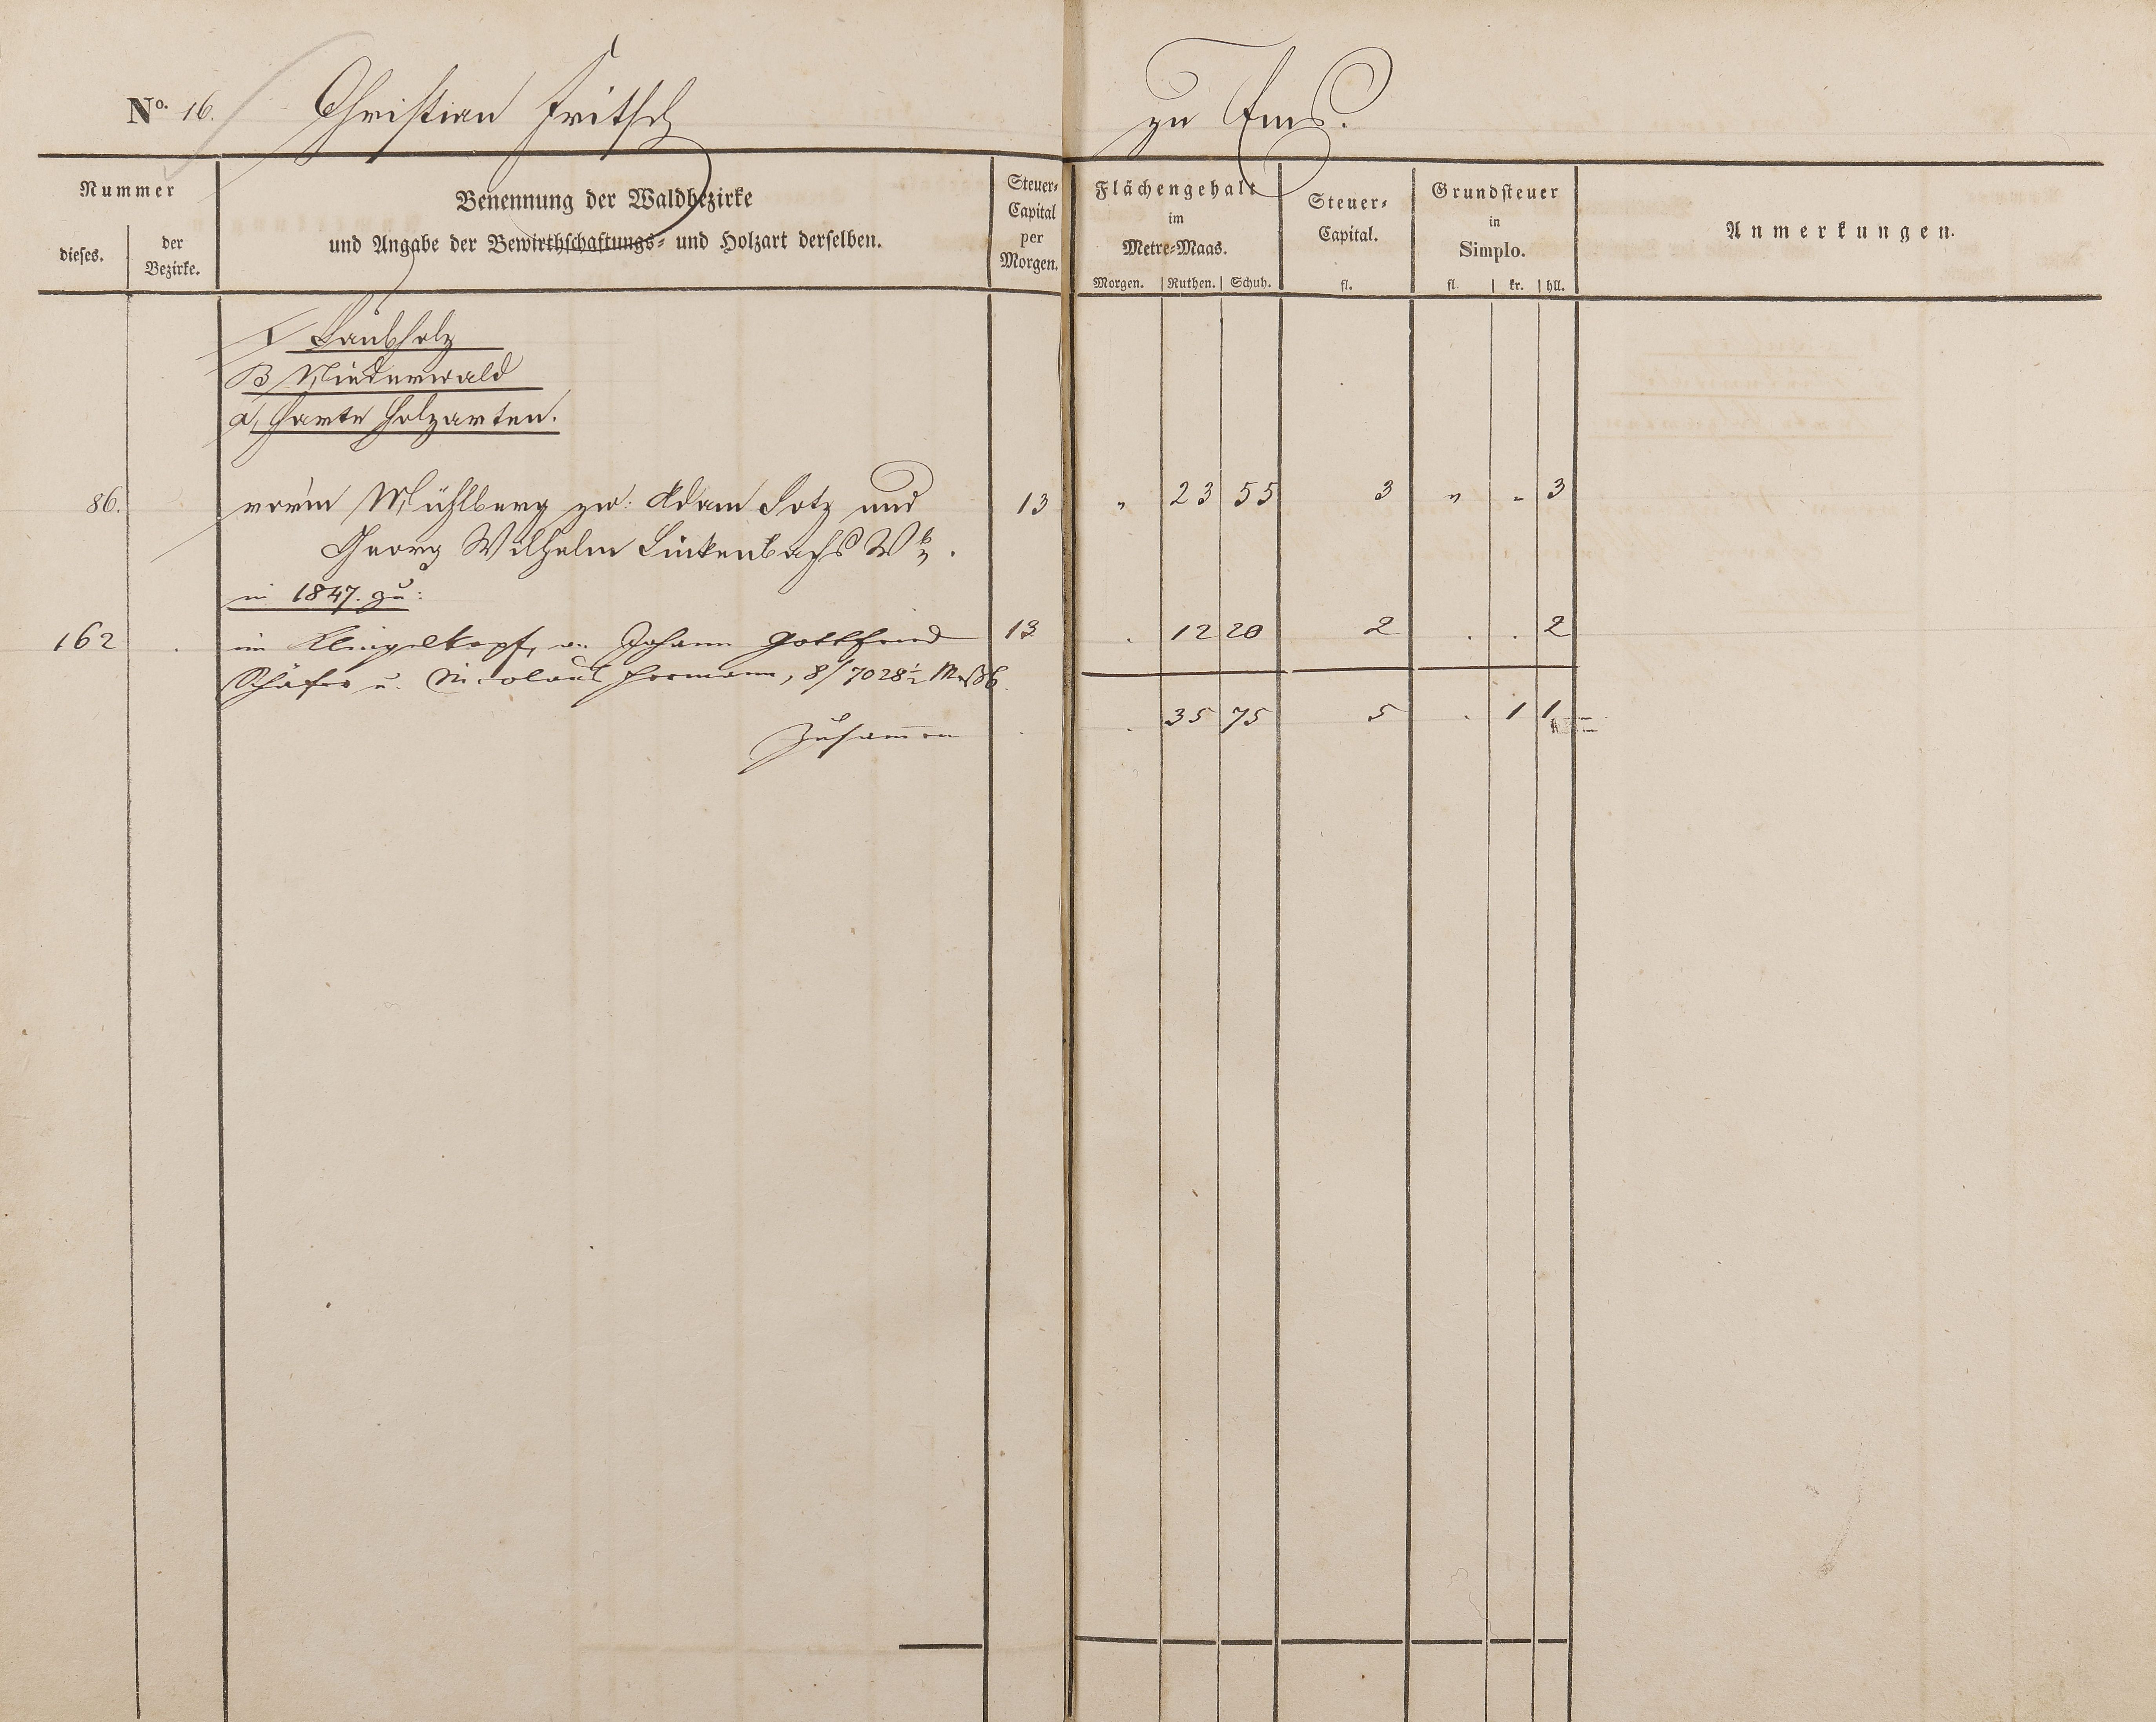 No. 16. Christian Fritsch zu Ems.
Nummer
dieses.
der
Bezirke.
Benennung der Waldbezirke
und Angabe der Bewirthschaftungs- und Holzart derselben.
Steuer-
Capital
per
Morgen.
Flächengehalt
im
Metre-Maas.
Morgen. Ruthen. Schuh.
Steuer-
Capital.
fl.
Grundsteuer
in
Simplo.
fl. kr. hll.
Anmerkungen.
I Laubholz
B Niederwald
a, Harte Holzarten.
86. vor'm Mühlberg zw: Adam Lotz und 13 " 23 55 3 " - 3
Georg Wilhelm Linkenbachs
in 1847. zu:
162 . im Klingelkopf, v. Johann Gottfried 13 . 12 20 2 . . 2
Schäfer u. Nicolaus Hermann, 8/7028½
Zusammen . . 35 75 5 . 1 1